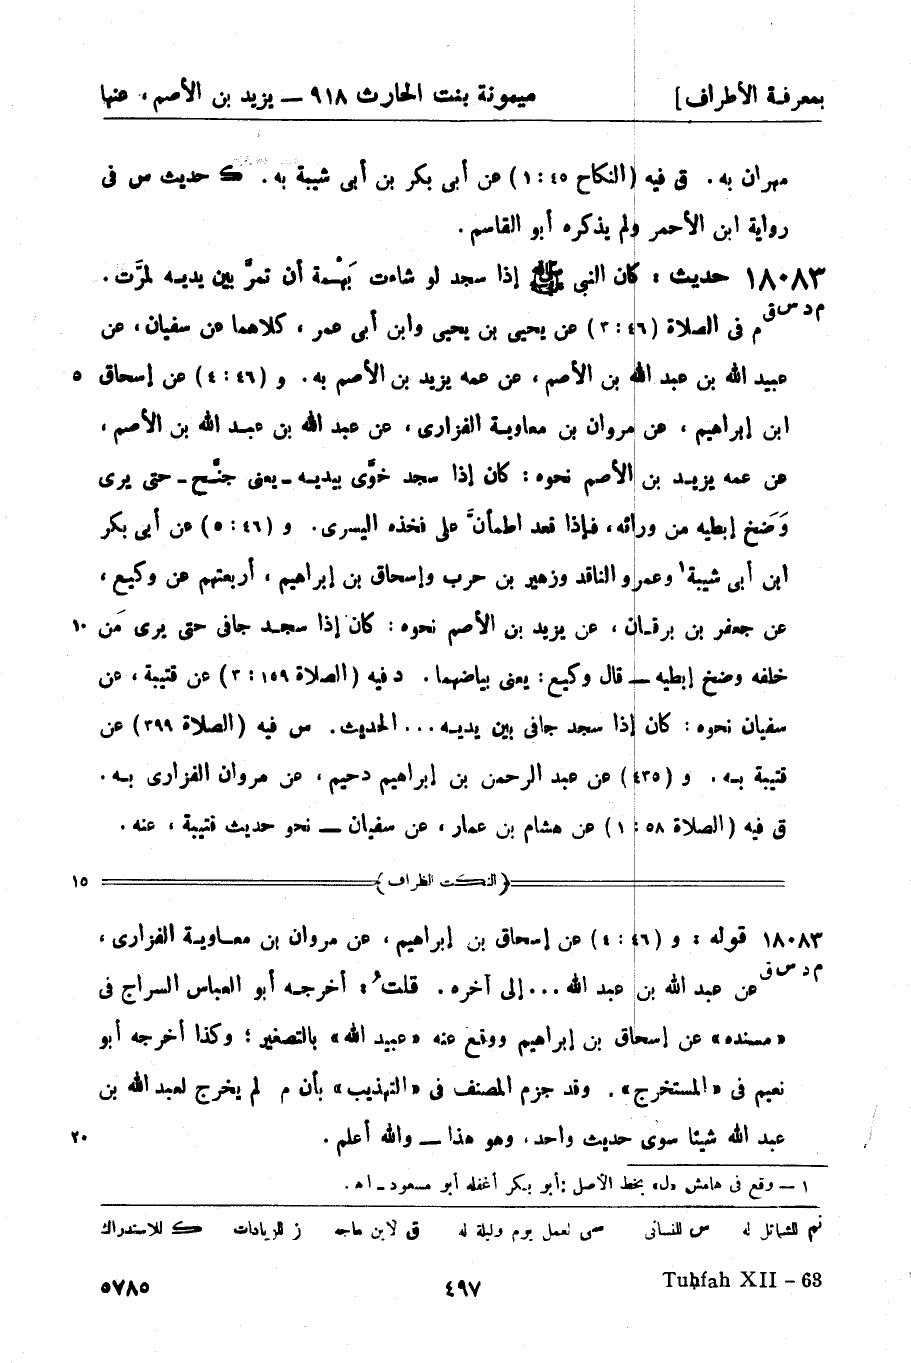 بمعرفة الأطراف] ميمونة بنت الحارث ٩١٨ — يزيد بن الأصم ، عنها
مهران به . ق فيه (النكاح ٤٥ : ١) عن أبى بكر بن أبى شيبة به . ك حديث س فى
رواية ابن الأحمر ولم يذكره أبو القاسم .
١٨٠٨٣ حديث : كان النبي ﷺ إذا سجد لو شاءت بَهْمة أن تمرَّ بين يديه لمرَّت .
م د س ق م فى الصلاة (٤٦ : ٣) عن يحيى بن يحيى وابن أبى عمر ، كلاهما عن سفيان ، عن
عبيد الله بن عبد الله بن الأصم ، عن عمه يزيد بن الأصم به . و (٤٦ : ٤) عن إسحاق ٥
ابن إبراهيم ، عن مروان بن معاوية الفزارى ، عن عبد الله بن عبد الله بن الأصم ،
عن عمه يزيد بن الأصم نحوه : كان إذا سجد خوَّى بيديه - يعنى جنَّح - حتى يرى
وَضَخ إبطيه من ورائه ، فإذا قعد اطمأنَّ على فخذه اليسرى . و (٤٦ : ٥) عن أبى بكر
ابن أبى شيبة١ وعمرو الناقد وزهير بن حرب وإسحاق بن إبراهيم ، أربعتهم عن وكيع ،
عن جعفر بن برقان ، عن يزيد بن الأصم نحوه : كان إذا سجد جافى حتى يرى مَن ١٠
خلفه وضخ إبطيه — قال وكيع : يعنى بياضهما . د فيه (الصلاة ١٥٩ : ٣) عن قتيبة ، عن
سفيان نحوه : كان إذا سجد جافى بين يديه ... الحديث . س فيه (الصلاة ٣٩٩) عن
قتيبة به . و (٤٣٥) عن عبد الرحمن بن إبراهيم دحيم ، عن مروان الفزارى به .
ق فيه (الصلاة ٥٨ : ١) عن هشام بن عمار ، عن سفيان — نحو حديث قتيبة ، عنه .
(النكت الظراف) ١٥
١٨٠٨٣ قوله : و (٤٦ : ٤) عن إسحاق بن إبراهيم ، عن مروان بن معاوية الفزارى ،
م د س ق عن عبد الله بن عبد الله ... إلى آخره . قلتُ : أخرجه أبو العباس السراج فى
«مسنده» عن إسحاق بن إبراهيم ووقع عنه «عبيد الله» بالتصغير ؛ وكذا أخرجه أبو
نعيم فى «المستخرج» . وقد جزم المصنف فى «التهذيب» بأن م لم يخرج لعبد الله بن
عبد الله شيئا سوى حديث واحد ، وهو هذا — والله أعلم . ٢٠
١ — وقع فى هامش «ل» بخط الأصل : أبو بكر أغفله أبو مسعود - اه .
تم للشمائل له س للنسائى سى لعمل يوم وليلة له ق لابن ماجه ز للزيادات ك للاستدراك
Tuḥfah XII - 63 ٤٩٧ ٥٧٨٥